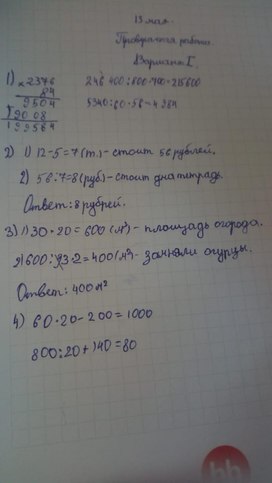 13 мая.
Проверочная работа.
Вариант I.
1) × 2376
84
9504
19008
199584
246 400:800·700=215600
5340:60·56=4984
2) 1) 12-5=7(т.)-стоит 56 рублей.
2) 56:7=8(руб)-стоит одна тетрадь.
Ответ:8 рублей.
3) 1) 30·20=600 (м²)-площадь огорода.
2) 600:3·2=400(м²)- заняли огурцы.
Ответ: 400м²
4) 60·20-200=1000
800:20+140=80